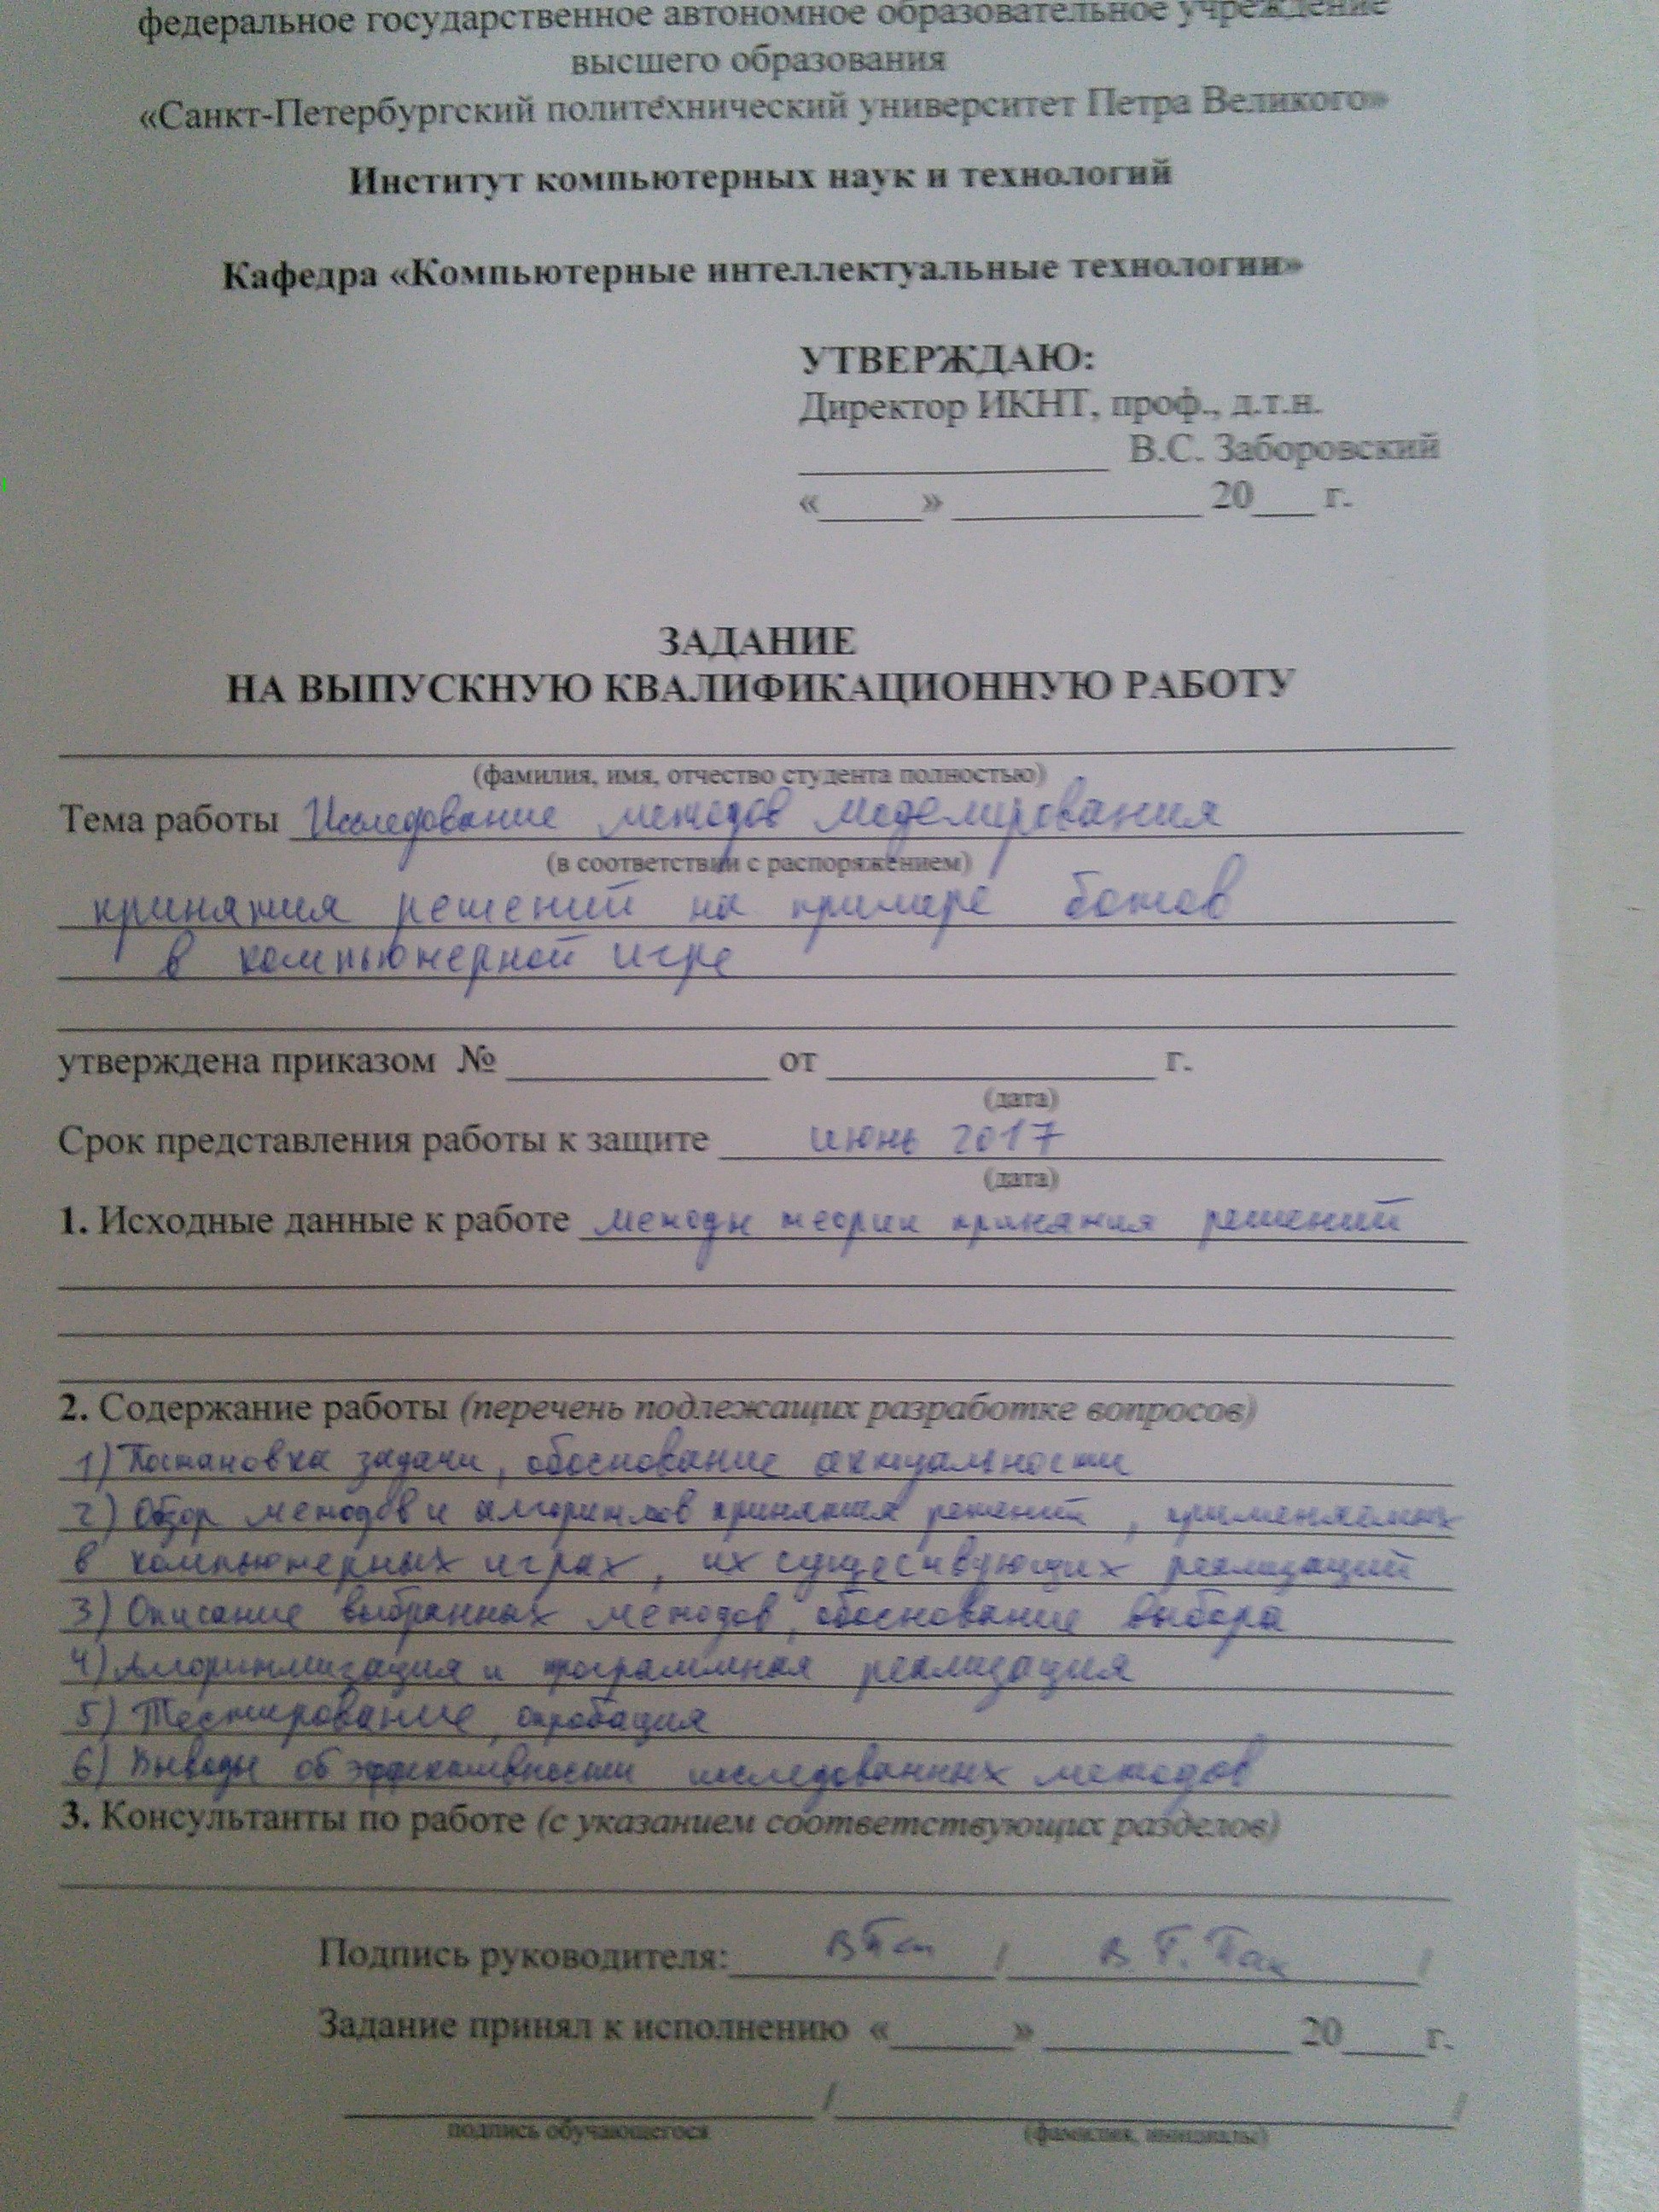 федеральное государственное автономное образовательное учреждение
высшего образования
«Санкт-Петербургский политехнический университет Петра Великого»
Институт компьютерных наук и технологий
Кафедра «Компьютерные интеллектуальные технологии»
УТВЕРЖДАЮ:
Директор ИКНТ, проф., д.т.н.
_______________ В.С. Заборовский
«_____» ____________ 20___ г.
ЗАДАНИЕ
НА ВЫПУСКНУЮ КВАЛИФИКАЦИОННУЮ РАБОТУ
(фамилия, имя, отчество студента полностью)
Тема работы Исследование методов моделирования
(в соответствии с распоряжением)
принятия решений на примере ботов
в компьютерной игре
утверждена приказом № _____________ от ________________ г.
(дата)
Срок представления работы к защите июнь 2017
(дата)
1. Исходные данные к работе методы теории принятия решений
2. Содержание работы (перечень подлежащих разработке вопросов)
1) Постановка задачи, обоснование актуальности
2) Обзор методов и алгоритмов принятия решений, применяемых
в компьютерных играх, их существующих реализаций
3) Описание выбранных методов, обоснование выбора
4) Алгоритмизация и программная реализация
5) Тестирование, апробация
6) Выводы об эффективности исследованных методов
3. Консультанты по работе (с указанием соответствующих разделов)
Подпись руководителя: ВПак / В.Г. Пак /
Задание принял к исполнению «______» ____________ 20____г.
/ /
подпись обучающегося (фамилия, инициалы)